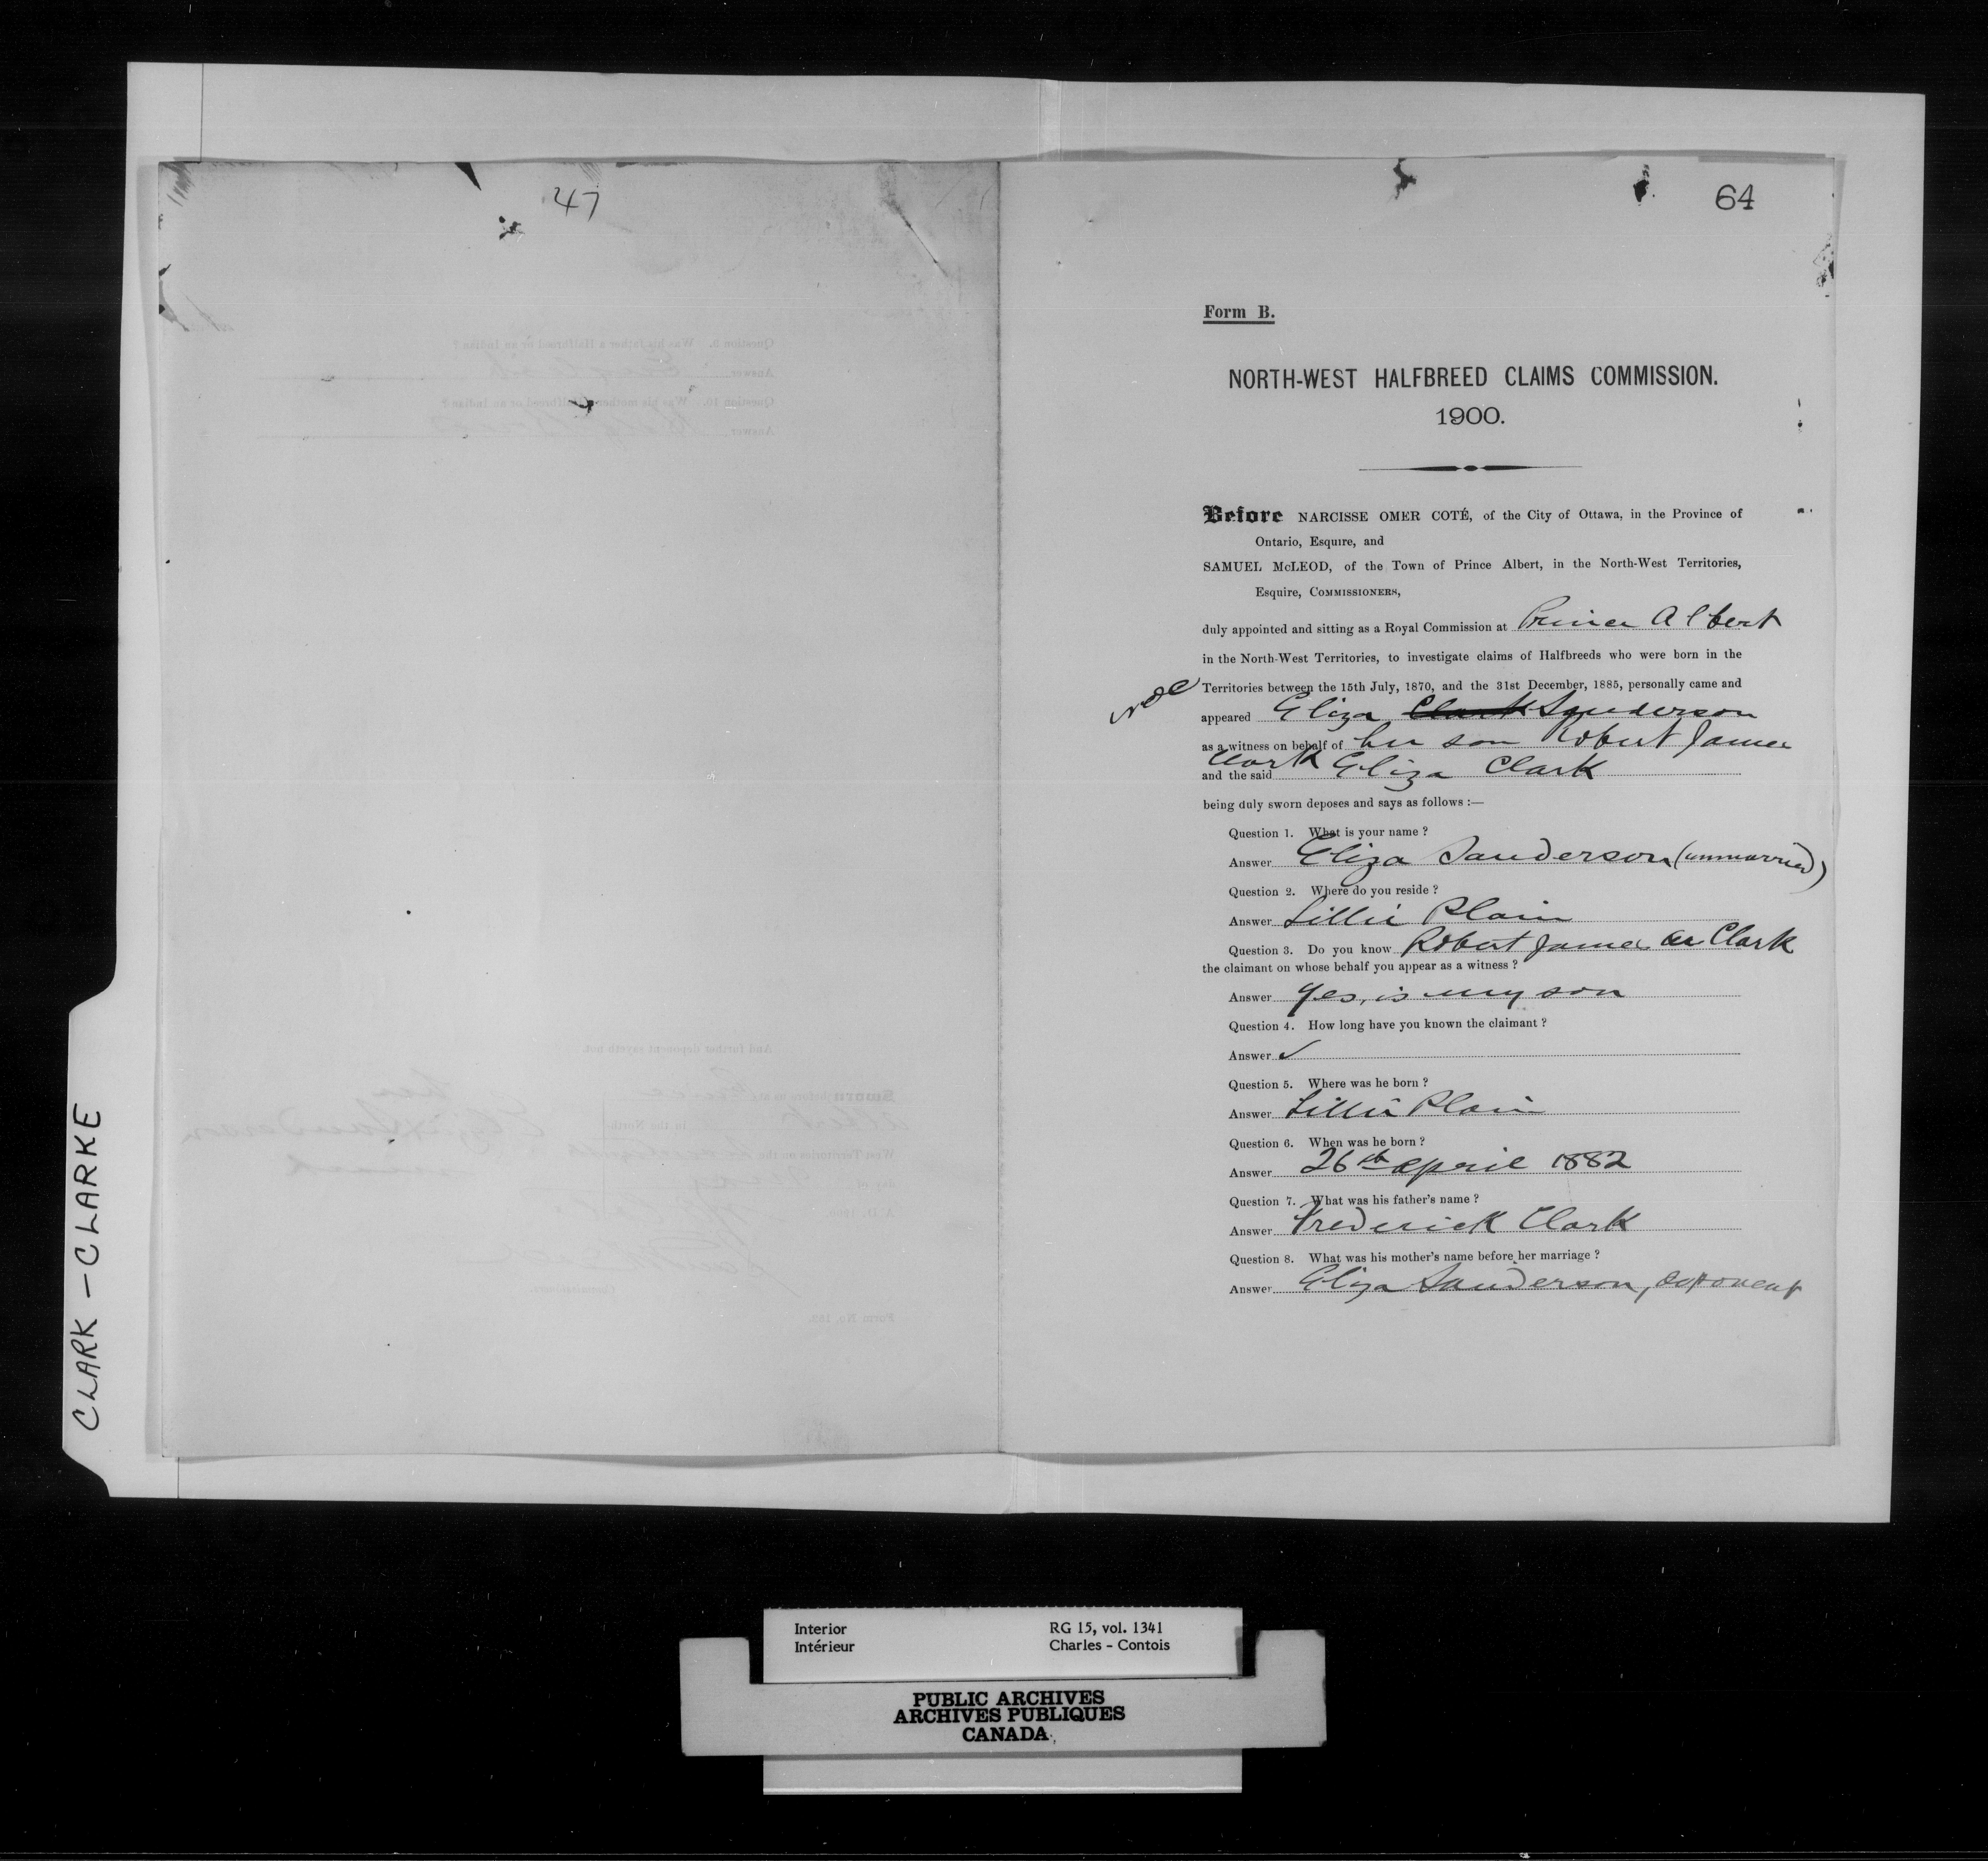 47
64
Form B.
NORTH-WEST HALFBREED CLAIMS COMMISSION.
1900.
Before NARCISSE OMER COTÉ, of the City of Ottawa, in the Province of
Ontario, Esquire, and
SAMUEL McLEOD, of the Town of Prince Albert, in the North-West Territories,
Esquire, COMMISSIONERS,
duly appointed and sitting as a Royal Commission at Prince Albert
in the North-West Territories, to investigate claims of Halfbreeds who were born in the
Territories between the 15th July, 1870, and the 31st December, 1885, personally came and
appeared Eliza Clark Sanderson
as a witness on behalf of her son Robert James
Clark
and the said Eliza Clark
being duly sworn deposes and says as follows :—
Question 1. What is your name ?
Answer Eliza Sanderson (unmarried)
Question 2. Where do you reside ?
Answer Lillie Plain
Question 3. Do you know Robert James Clark
the claimant on whose behalf you appear as a witness ?
Answer Yes, is my son
Question 4. How long have you known the claimant ?
Answer ✓
Question 5. Where was he born ?
Answer Lillie Plain
Question 6. When was he born ?
Answer 26th April 1882
Question 7. What was his father's name ?
Answer Frederick Clark
Question 8. What was his mother's name before her marriage ?
Answer Eliza Sanderson, deponent
CLARK - CLARKE
Interior
Intérieur
RG 15, vol. 1341
Charles - Contois
PUBLIC ARCHIVES
ARCHIVES PUBLIQUES
CANADA